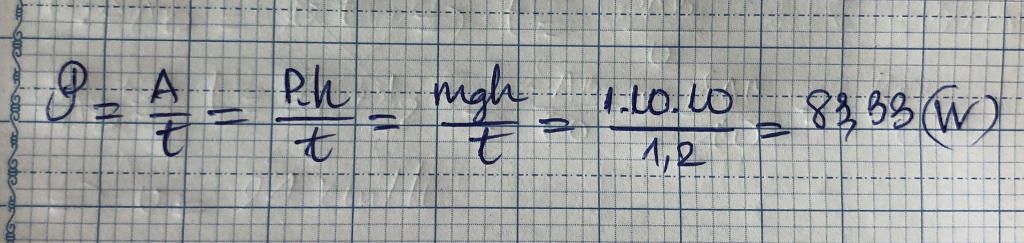 𝒫 = A/t = P.h/t = mgh/t = 1.10.10/1,2 = 83,33 (W)